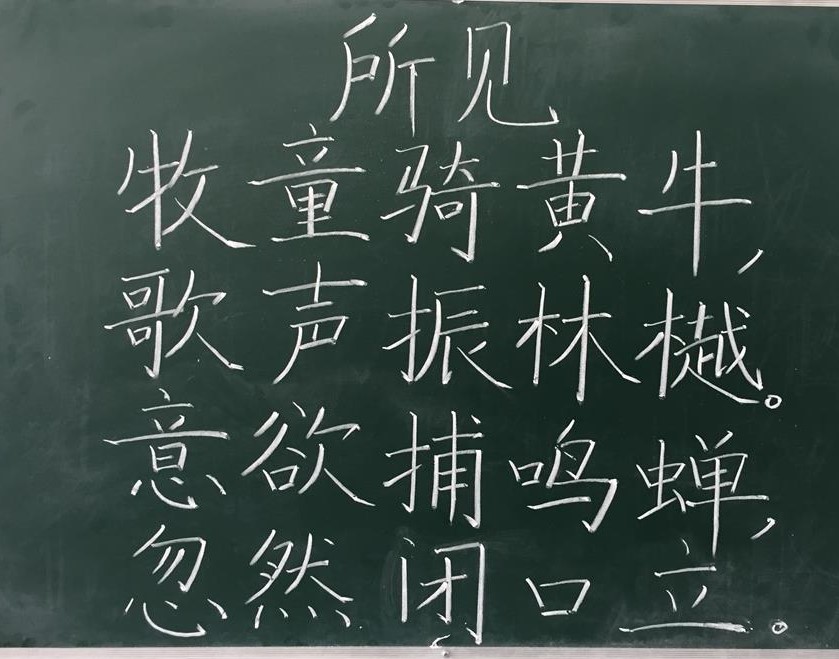 所见
牧童骑黄牛，
歌声振林樾。
意欲捕鸣蝉，
忽然闭口立。